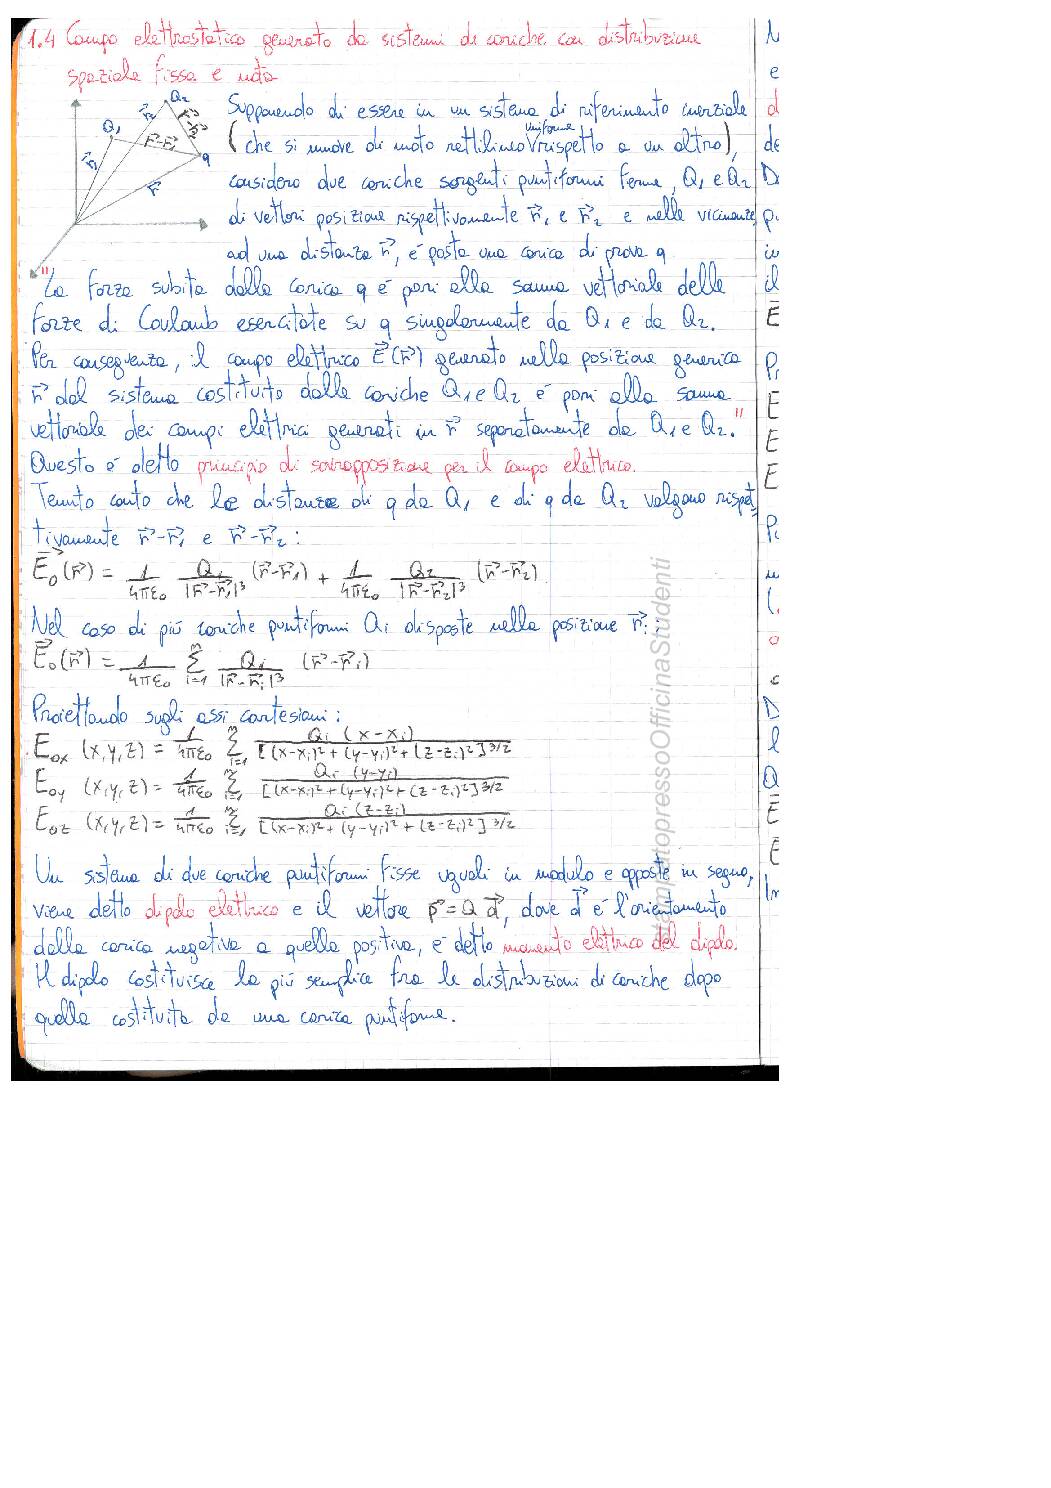 1.4 Campo elettrostatico generato da sistemi di cariche con distribuzione
spaziale fissa e nota
Q₁ Q₂ q r⃗₁ r⃗₂ r⃗ r⃗-r⃗₁ r⃗-r⃗₂
Supponendo di essere in un sistema di riferimento inerziale
(che si muove di moto rettilineo uniforme rispetto a un altro),
considero due cariche sorgenti puntiformi ferme, Q₁ e Q₂
di vettori posizione rispettivamente r⃗₁ e r⃗₂ e nelle vicinanze,
ad una distanza r⃗, é posta una carica di prova q.
"La forza subita dalla carica q é pari alla somma vettoriale delle
forze di Coulomb esercitate su q singolarmente da Q₁ e da Q₂.
Per conseguenza, il campo elettrico E⃗(r⃗) generato nella posizione generica
r⃗ dal sistema costituito dalle cariche Q₁ e Q₂ é pari alla somma
vettoriale dei campi elettrici generati in r⃗ separatamente da Q₁ e Q₂."
Questo é detto principio di sovrapposizione per il campo elettrico.
Tenuto conto che le distanze di q da Q₁ e di q da Q₂ valgono rispet
tivamente r⃗-r⃗₁ e r⃗-r⃗₂:
E⃗₀(r⃗) = 1/4πε₀ Q₁/|r⃗-r⃗₁|³ (r⃗-r⃗₁) + 1/4πε₀ Q₂/|r⃗-r⃗₂|³ (r⃗-r⃗₂)
Nel caso di più cariche puntiformi Qi disposte nella posizione r⃗i:
E⃗₀(r⃗) = 1/4πε₀ Σ i=1 n Qi/|r⃗-r⃗i|³ (r⃗-r⃗i)
Proiettando sugli assi cartesiani:
E₀x (x,y,z) = 1/4πε₀ Σ i=1 n Qi (x-xi)/[(x-xi)²+(y-yi)²+(z-zi)²]^3/2
E₀y (x,y,z) = 1/4πε₀ Σ i=1 n Qi (y-yi)/[(x-xi)²+(y-yi)²+(z-zi)²]^3/2
E₀z (x,y,z) = 1/4πε₀ Σ i=1 n Qi (z-zi)/[(x-xi)²+(y-yi)²+(z-zi)²]^3/2
Un sistema di due cariche puntiformi fisse uguali in modulo e opposte in segno,
viene detto dipolo elettrico e il vettore p⃗ = Q d⃗, dove d⃗ é l'orientamento
dalla carica negativa a quella positiva, é detto momento elettrico del dipolo.
Il dipolo costituisce la più semplice fra le distribuzioni di cariche dopo
quella costituita da una carica puntiforme.
StampatopressoOfficinaStudenti